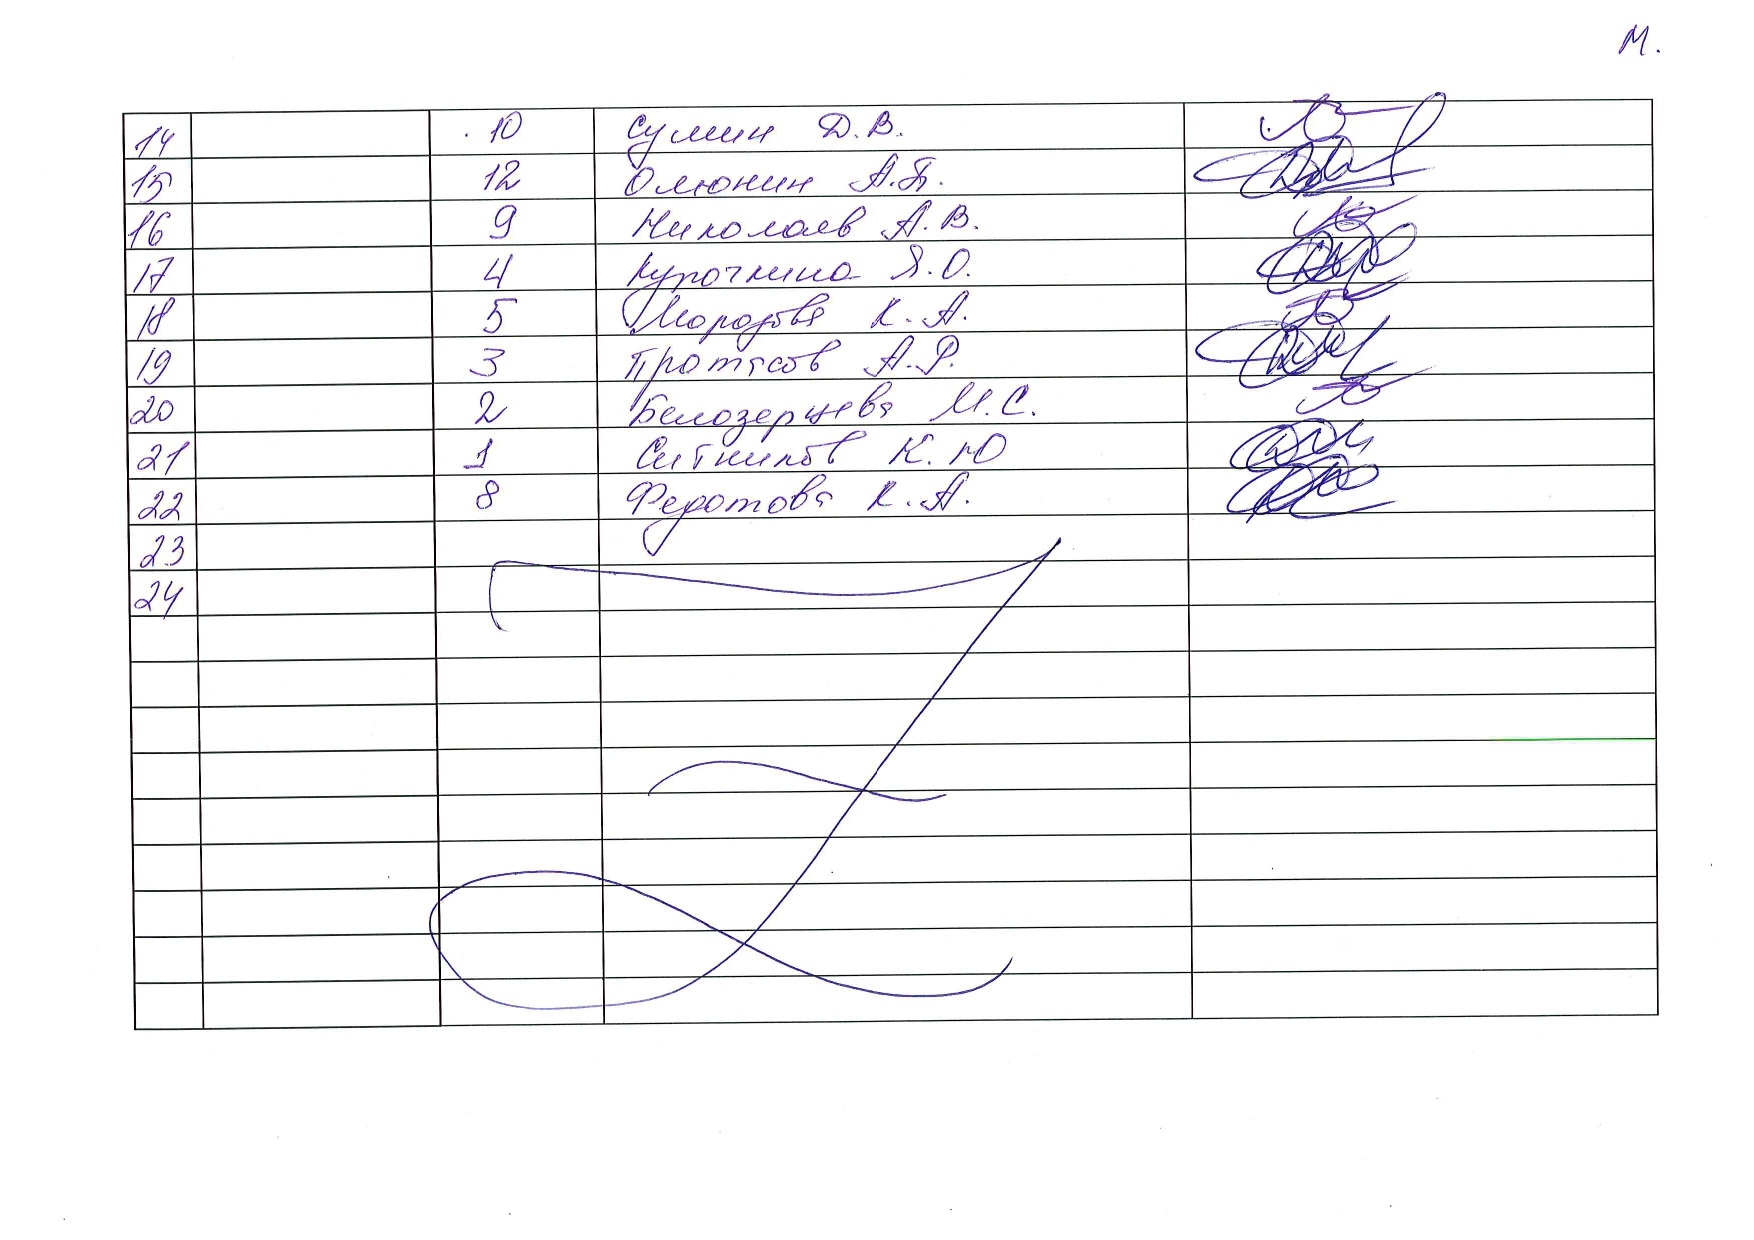 М.
14 10 Сумин Д.В.
15 12 Олюнин А.Б.
16 9 Николаев А.В.
17 4 Курочкина Я.О.
18 5 Морозова К.А.
19 3 Протасов А.Р.
20 2 Белозерцева М.С.
21 1 Ситников К.Ю
22 8 Федотова К.А.
23
24